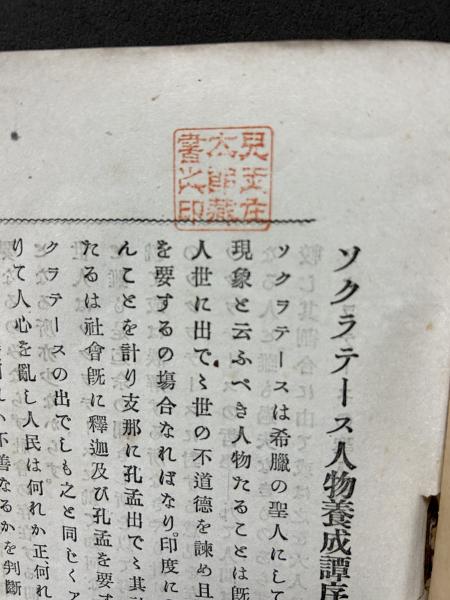 兒玉庄
太郎藏
書之印
ソクラテース人物養成譚序
ソクラテースは希臘の聖人にして
現象と云ふべき人物たることは既
人世に出でゝ世の不道德を諫め且
を要するの塲合なればなり。印度に
んことを計り支那に孔孟出でゝ其
たるは社會既に釋迦及び孔孟を要す
クラテースの出でしも之と同じくア
りて人心を亂し人民は何れか正、何れ
不善なるかを判斷